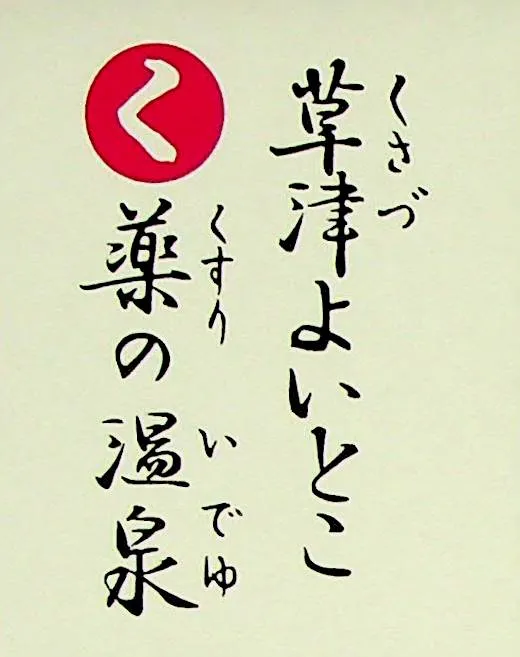 くさづ
草津よいとこ
く
くすり いでゆ
薬の温泉